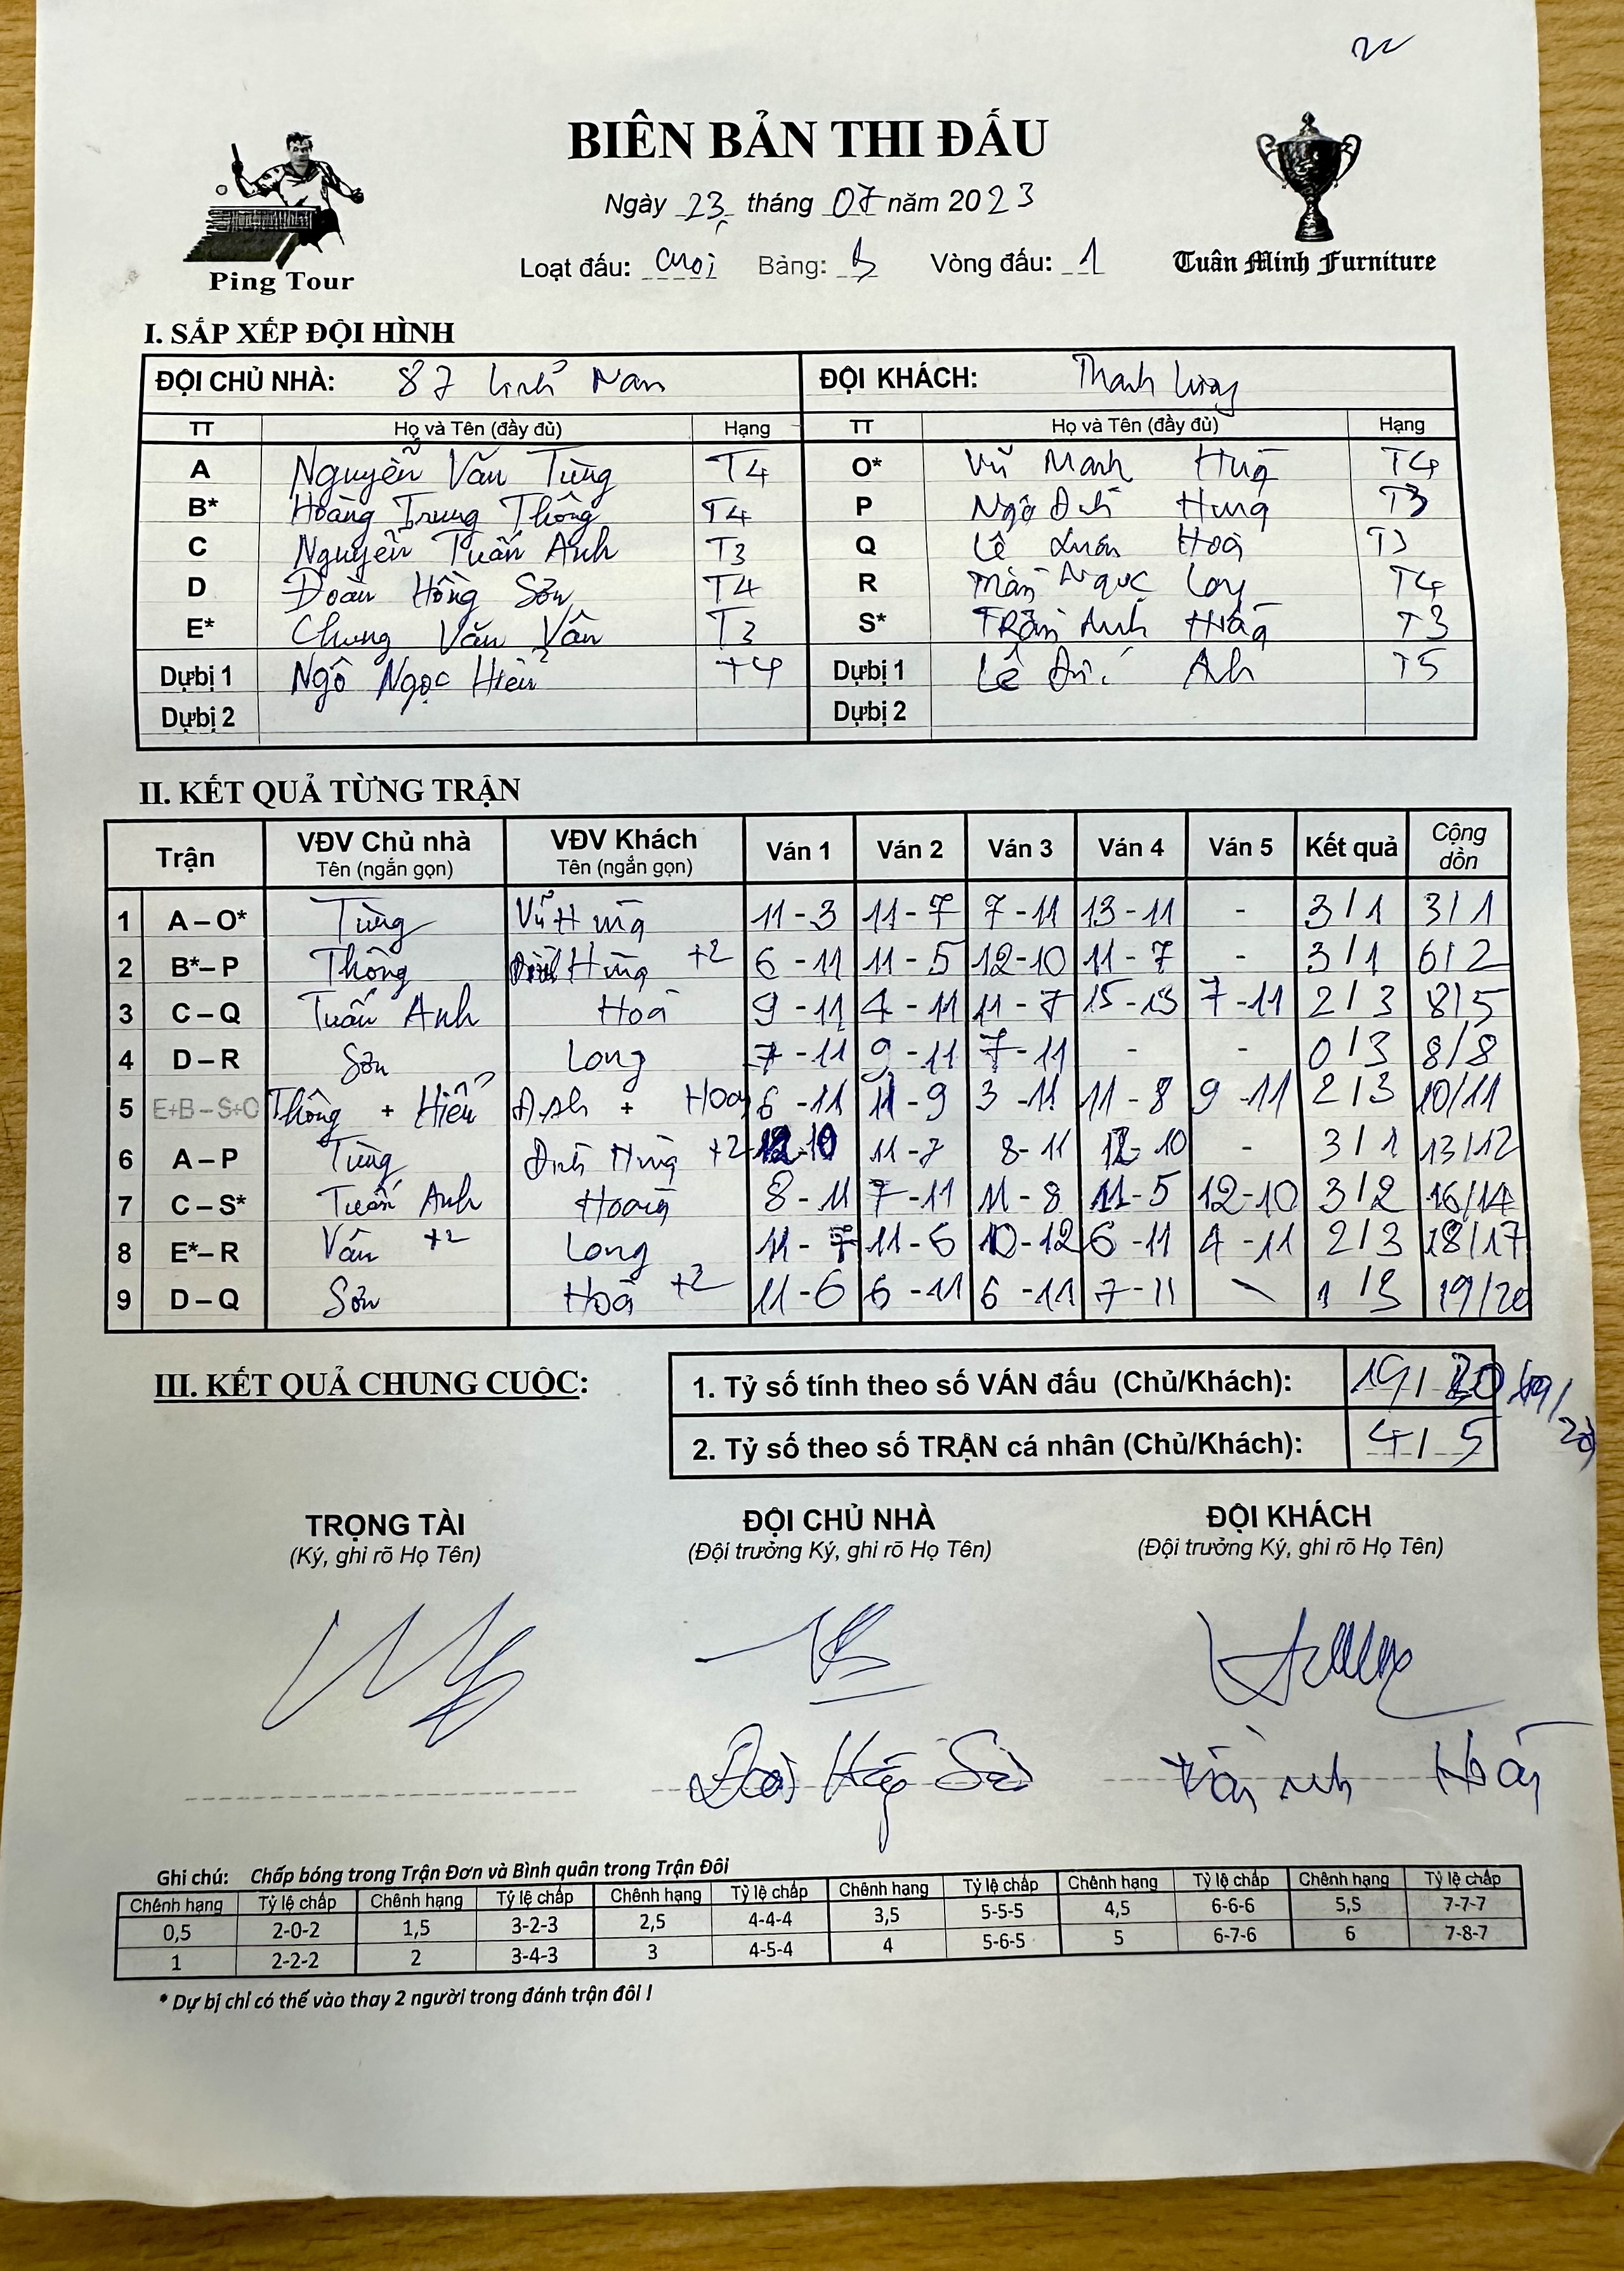 BIÊN BẢN THI ĐẤU
Ngày 23 tháng 07 năm 2023
Ping Tour
Loạt đấu: cuối Bảng: B Vòng đấu: 1
Tuân Minh Furniture
I. SẮP XẾP ĐỘI HÌNH
ĐỘI CHỦ NHÀ: 87 Lĩnh Nam ĐỘI KHÁCH: Thanh
TT Họ và Tên (đầy đủ) Hạng TT Họ và Tên (đầy đủ) Hạng
A Nguyễn Văn Tùng T4 O* Vũ Mạnh Hùng T4
B* Hoàng Trung Thông T4 P Ngô Đình Hùng T3
C Nguyễn Tuấn Anh T3 Q Lê Xuân Hoà T3
D Đoàn Hồng Sơn T4 R Ngọc Long T4
E* Chung Văn Vân T3 S* Trần Anh Hoàng T3
Dự bị 1 Ngô Ngọc Hiển T4 Dự bị 1 Lê Anh T5
Dự bị 2 Dự bị 2
II. KẾT QUẢ TỪNG TRẬN
Trận VĐV Chủ nhà VĐV Khách Ván 1 Ván 2 Ván 3 Ván 4 Ván 5 Kết quả Cộng dồn
Tên (ngắn gọn) Tên (ngắn gọn)
1 A – O* Tùng Vũ Hùng 11 - 3 11 - 7 7 - 11 13 - 11 - 3 / 1 3 / 1
2 B* – P Thông Hùng +2 6 - 11 11 - 5 12 - 10 11 - 7 - 3 / 1 6 / 2
3 C – Q Tuấn Anh Hoà 9 - 11 4 - 11 11 - 7 15 - 13 7 - 11 2 / 3 8 / 5
4 D – R Sơn Long 7 - 11 9 - 11 7 - 11 - - 0 / 3 8 / 8
5 E+B – S+O Thông + Hiển + 6 - 11 11 - 9 3 - 11 11 - 8 9 - 11 2 / 3 10 / 11
6 A – P Tùng Đình Hùng +2 12-10 11 - 7 8 - 11 12 - 10 - 3 / 1 13 / 12
7 C – S* Tuấn Anh Hoàng 8 - 11 7 - 11 11 - 8 11 - 5 12 - 10 3 / 2 16 / 14
8 E* – R Vân +2 Long 11 - 7 11 - 6 10 - 12 6 - 11 4 - 11 2 / 3 18 / 17
9 D – Q Sơn Hoà +2 11 - 6 6 - 11 6 - 11 7 - 11 \ 1 / 3 19 / 20
III. KẾT QUẢ CHUNG CUỘC:
1. Tỷ số tính theo số VÁN đấu (Chủ/Khách): 19 / 20 19/20
2. Tỷ số theo số TRẬN cá nhân (Chủ/Khách): 4 / 5
TRỌNG TÀI ĐỘI CHỦ NHÀ ĐỘI KHÁCH
(Ký, ghi rõ Họ Tên) (Đội trưởng Ký, ghi rõ Họ Tên) (Đội trưởng Ký, ghi rõ Họ Tên)
Ghi chú: Chấp bóng trong Trận Đơn và Bình quân trong Trận Đôi
Chênh hạng Tỷ lệ chấp Chênh hạng Tỷ lệ chấp Chênh hạng Tỷ lệ chấp Chênh hạng Tỷ lệ chấp Chênh hạng Tỷ lệ chấp Chênh hạng Tỷ lệ chấp
0,5 2-0-2 1,5 3-2-3 2,5 4-4-4 3,5 5-5-5 4,5 6-6-6 5,5 7-7-7
1 2-2-2 2 3-4-3 3 4-5-4 4 5-6-5 5 6-7-6 6 7-8-7
* Dự bị chỉ có thể vào thay 2 người trong đánh trận đôi !